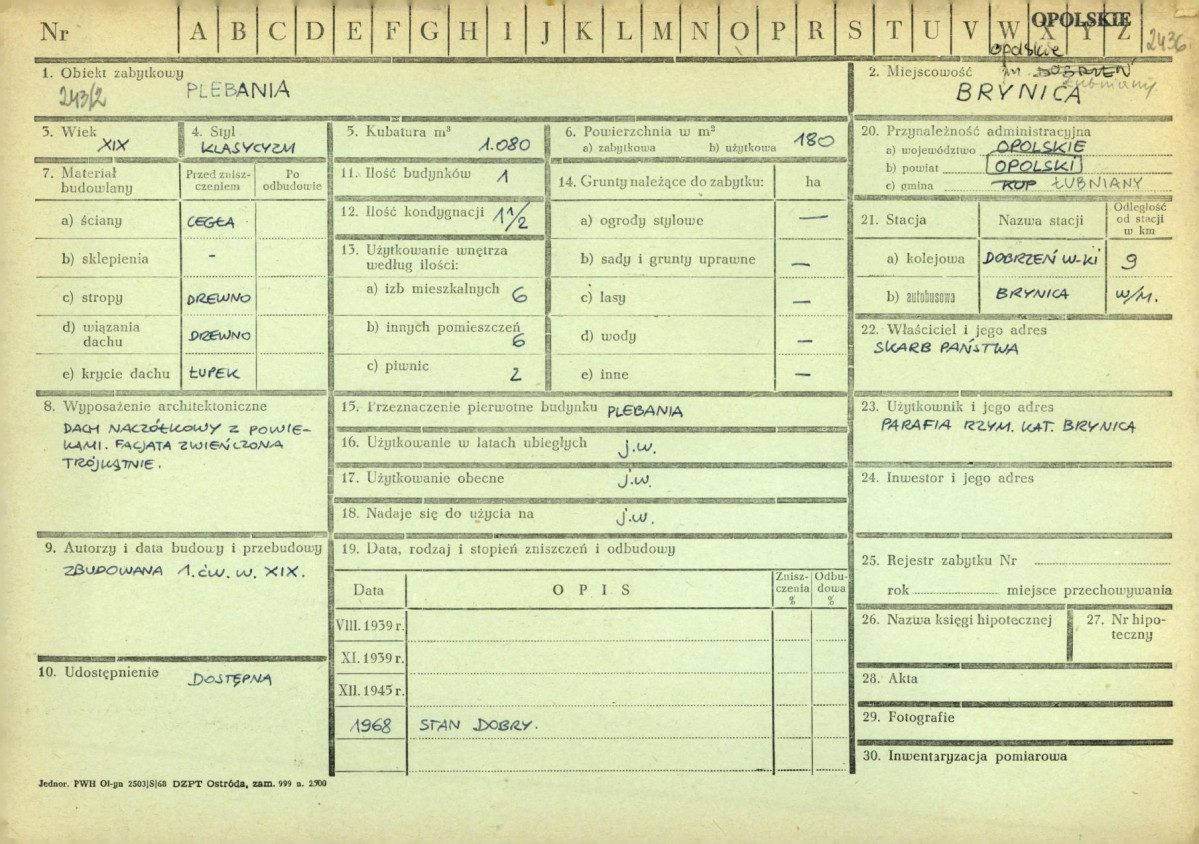 Nr A B C D E F G H I J K L M N O P R S T U V W X Y Z
OPOLSKIE
2436
1. Obiekt zabytkowy
243/2
PLEBANIA
2. Miejscowość
opolskie
DOBRZEŃ
Łubniany
BRYNICA
3. Wiek
XIX
4. Styl
KLASYCYZM
5. Kubatura m³
1.080
6. Powierzchnia w m²
a) zabytkowa b) użytkowa
180
7. Materiał budowlany
Przed zniszczeniem
Po odbudowie
a) ściany CEGŁA
b) sklepienia -
c) stropy DREWNO
d) wiązania dachu DREWNO
e) krycie dachu ŁUPEK
8. Wyposażenie architektoniczne
DACH NACZÓŁKOWY Z POWIE-
KAMI. FACJATA ZWIEŃCZONA
TRÓJKĄTNIE.
9. Autorzy i data budowy i przebudowy
ZBUDOWANA 1. ĆW. W. XIX.
10. Udostępnienie
DOSTĘPNA
11. Ilość budynków 1
12. Ilość kondygnacji 1 1/2
13. Użytkowanie wnętrza
według ilości:
a) izb mieszkalnych 6
b) innych pomieszczeń 6
c) piwnic 2
14. Grunty należące do zabytku: ha
a) ogrody stylowe —
b) sady i grunty uprawne —
c) lasy —
d) wody —
e) inne —
15. Przeznaczenie pierwotne budynku PLEBANIA
16. Użytkowanie w latach ubiegłych j.w.
17. Użytkowanie obecne j.w.
18. Nadaje się do użycia na j.w.
19. Data, rodzaj i stopień zniszczeń i odbudowy
Data OPIS Zniszczenia % Odbudowa %
VIII. 1939 r.
XI. 1939 r.
XII. 1945 r.
1968 STAN DOBRY.
20. Przynależność administracyjna
a) województwo OPOLSKIE
b) powiat OPOLSKI
c) gmina KUP ŁUBNIANY
21. Stacja Nazwa stacji Odległość od stacji w km
a) kolejowa DOBRZEŃ W-KI 9
b) autobusowa BRYNICA W/M.
22. Właściciel i jego adres
SKARB PAŃSTWA
23. Użytkownik i jego adres
PARAFIA RZYM. KAT. BRYNICA
24. Inwestor i jego adres
25. Rejestr zabytku Nr
rok miejsce przechowywania
26. Nazwa księgi hipotecznej
27. Nr hipoteczny
28. Akta
29. Fotografie
30. Inwentaryzacja pomiarowa
Jednor. PWH Ol-yn 2503|S|68 DZPT Ostróda, zam. 999 n. 2500